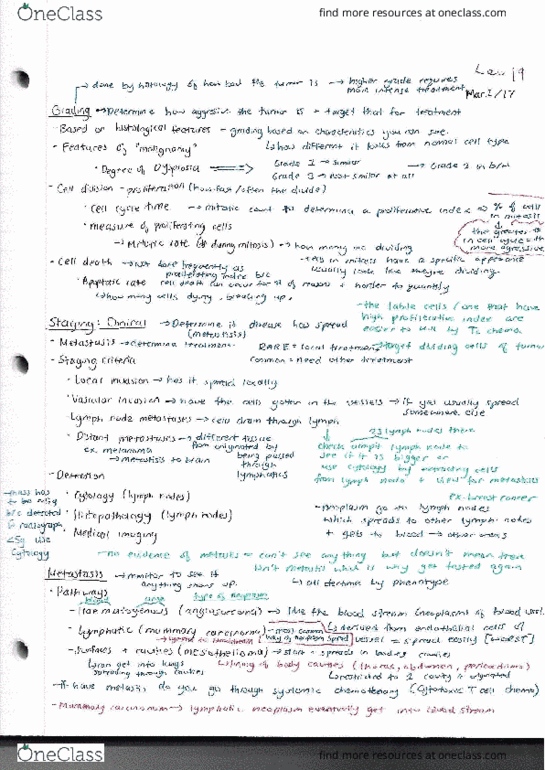 OneClass
find more resources at oneclass.com
Law 19
Mar 2/17
→ done by histology of how bad the tumor is → higher grade requires
more intense treatment
Grading → Determine how aggressive the tumor is + target that for treatment
- Based on histological features - grading based on characteristics you can see.
- Features of "malignancy" how different it looks from normal cell type
• Degree of Dysplasia Grade 1 → similar → Grade 2 in b/w
Grade 3 → not similar at all
- Cell division - proliferation (how fast/often the divide)
• Cell cycle time → mitotic count to determine a proliferative index % of cells
in mitosis
• measure of proliferating cells
the greater
more aggressive
→ Mitotic rate → how many are dividing
- Cell death → not done frequently as
proliferating index b/c
• Apoptotic rate cell death can occur for of reasons + harder to quantify
how many cells dying, breaking up.
usually look like they're dividing.
- the labile cells / one that have
high proliferation index are
easier to kill by chemo
target dividing cells of tumor
Staging: Clinical → Determine if disease has spread
(metastasis)
- Metastasis → determine treatment RARE = local treatment
common = need other treatment
- Staging criteria
• Local invasion → has it spread locally
• Vascular invasion → have the cells gotten in the vessels → if yes usually spread
somewhere else
• Lymph node metastasis → cells drain through lymph
• Distant metastasis → different tissue
from originated by
being passed
through
lymphatics
ex. melanoma
→ metastasis to brain
lymph nodes there
check lymph node to
see if it is bigger or
use cytology by extracting cells
from lymph node + view for metastasis
ex. breast cancer
- Detection
• Cytology (lymph nodes)
• Histopathology (lymph nodes)
• Medical imaging
→ mass has
to be
b/c detected
radiograph
use
Cytology
neoplasm go to lymph nodes
which spreads to other lymph nodes
+ gets to blood → other areas
- no evidence of metastasis = can't see anything but doesn't mean there
isn't metastasis which is why get tested again
Metastasis → monitor to see if
anything shows up. → all determine by phenotype
• Pathways
blood type of neoplasm
- Haematogenous (angiosarcoma) → like the blood stream (neoplasm of blood vessel)
derived from endothelial cells of
vessel = spread easily [worst]
- Lymphatic (mammary carcinoma) - most common
way of neoplasm spread
- Surfaces + cavities (mesothelioma) → start + spreads in bodies cavities
can get into lungs
spreading through cavities
lining of body cavities (thorax, abdomen, pericardium)
restricted to 1 cavity it originated
- If have metasis, do you go through systemic chemotherapy (cytotoxic T cell chemo)
- Mammary carcinoma → lymphatic neoplasm eventually get into blood stream
OneClass
find more resources at oneclass.com